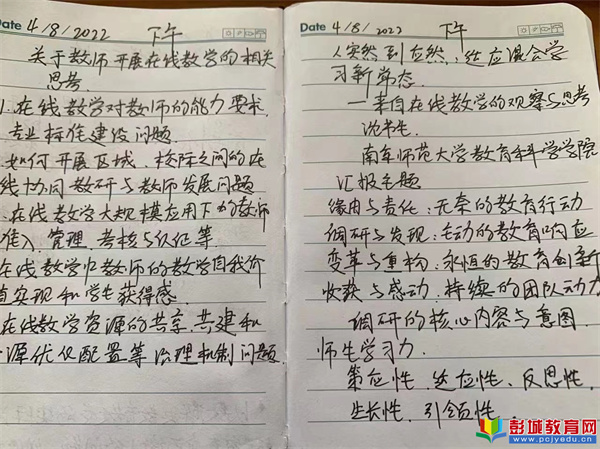 Date 4/8/2022 下午
关于教师开展在线教学的相关
思考.
1.在线教学对教师的能力要求.
专业标准建设问题
如何开展区域、校际之间的在
线协同教研与教师发展问题
在线教学大规模应用下的教师
准入、管理、考核与认证等
在线教学中教师的教学自我价
值实现和学生获得感.
在线教学资源的共享、共建和
源优化配置等治理机制问题.
Date 4/8/2022 下午
从突然到应然:适应混合学
习新常态.
—来自在线教学的观察与思考
沈书生.
南京师范大学教育科学学院
汇报主题
缘由与责任:无奈的教育行动
调研与发现:主动的教育响应
变革与重构:永恒的教育创新
收获与感动:持续的团队动力
调研的核心内容与意图.
师生学习力.
策应性、适应性、反思性.
生长性、引领性.
彭城教育网
www.pcjyedu.cn